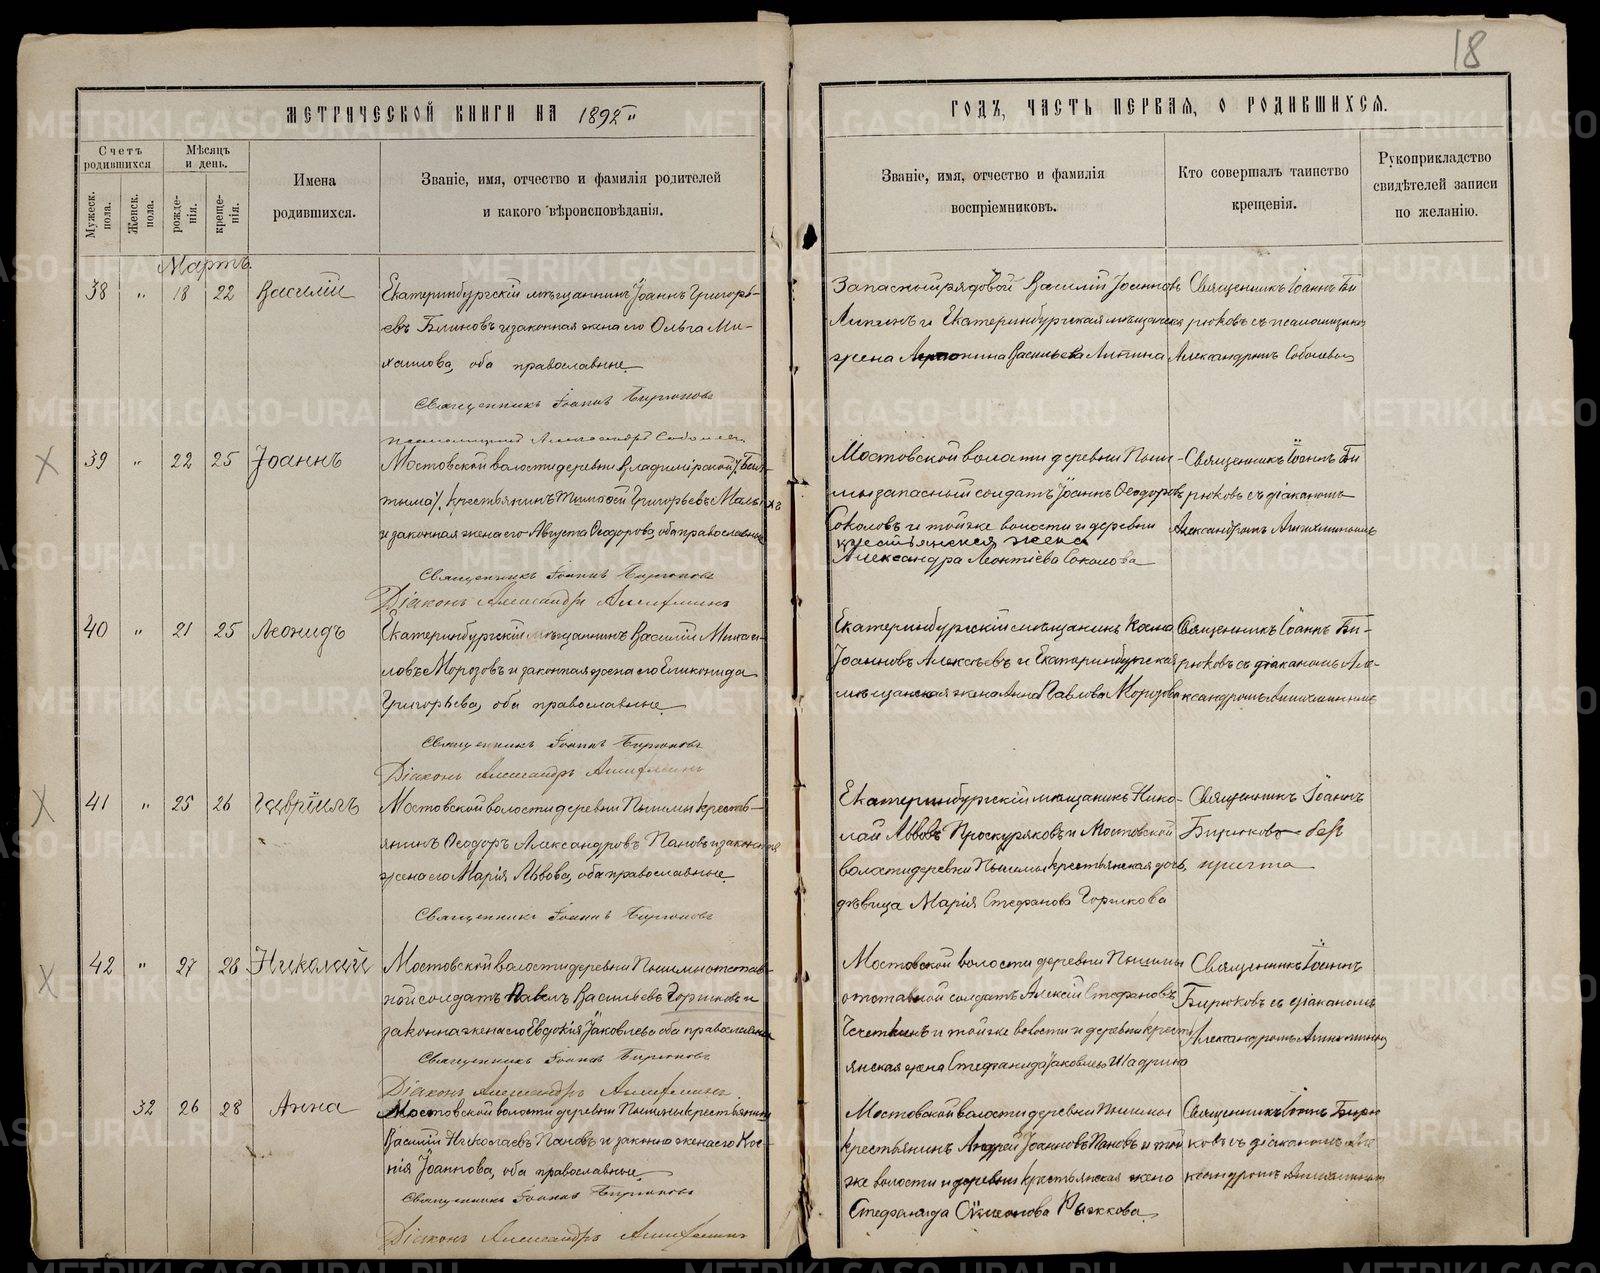 18
МЕТРИЧЕСКОЙ КНИГИ НА 1895
Счетъ родившихся
Мѣсяцъ и день.
Мужеск. пола.
Женск. пола.
рожде-нія.
креще-нія.
Имена
родившихся.
Званіе, имя, отчество и фамилія родителей
и какого вѣроисповѣданія.
Мартъ.
38 " 18 22 Василій
Екатеринбургскій мѣщанинъ Іоаннъ Григорь-
евъ Блиновъ и законная жена его Ольга Ми-
хаилова, оба православные.
Священникъ Іоаннъ Бирюковъ
псаломщикъ Александръ Соболевъ
39 " 22 25 Іоаннъ
Мостовской волости деревни Владимірской
крестьянинъ Тимофей Григорьевъ
и законная жена его Августа Ѳеодорова, оба православные
Священникъ Іоаннъ Бирюковъ
Діаконъ Александръ
40 " 21 25 Леонидъ
Екатеринбургскій мѣщанинъ Василій Михаи-
ловъ Морозовъ и законная жена его Еликонида
Григорьева, оба православные.
Священникъ Іоаннъ Бирюковъ
Діаконъ Александръ
41 " 25 26 Гавріилъ
Мостовской волости деревни Пышмы кресть-
янинъ Ѳеодоръ Александровъ Пановъ и законная
жена его Марія Львова, оба православные.
Священникъ Іоаннъ Бирюковъ
42 " 27 28 Николай
Мостовской волости деревни Пышмы отстав-
ной солдатъ Павелъ Васильевъ Горшковъ и
законна жена его Евдокія Іаковлева оба православные
Священникъ Іоаннъ Бирюковъ
Діаконъ Александръ
32 26 28 Анна
Мостовской волости деревни Пышмы крестьянинъ
Василій Николаевъ Пановъ и законна жена его Ксе-
нія Іоаннова, оба православные.
Священникъ Іоаннъ Бирюковъ
Діаконъ Александръ
ГОДЪ, ЧАСТЬ ПЕРВАЯ, О РОДИВШИХСЯ.
Званіе, имя, отчество и фамилія
воспріемниковъ.
Кто совершалъ таинство
крещенія.
Рукоприкладство
свидѣтелей записи
по желанію.
Запасный рядовой Василій Іоанновъ
Липинъ и Екатеринбургская мѣщанская
жена Антонина Васильева Липина
Священникъ Іоаннъ Би
рюковъ съ псаломщикомъ
Александромъ Соболевымъ
Мостовской волости деревни Пыш-
мы запасный солдатъ Іоаннъ Ѳеодоровъ
Соколовъ и той же волости и деревни
крестьянская жена
Александра Леонтіева Соколова
Священникъ Іоаннъ Би
рюковъ съ діакономъ
Александромъ
Екатеринбургскій мѣщанинъ Косма
Іоанновъ Алексѣевъ и Екатеринбургская
мѣщанская жена Анна Павлова Морозова
Священникъ Іоаннъ Би-
рюковъ съ діакономъ Але-
ксандромъ
Екатеринбургскій мѣщанинъ Нико-
лай Львовъ Проскуряковъ и Мостовской
волости деревни Пышмы крестьянская дочь,
дѣвица Марія Стефанова Горшкова
Священникъ Іоаннъ
Бирюковъ безъ
причта
Мостовской волости деревни Пышмы
отставной солдатъ Алексій Стефановъ
и той же волости и деревни кресть
янская жена Стефанида Іаковлева Шадрина
Священникъ Іоаннъ
Бирюковъ съ діакономъ
Александромъ
Мостовской волости деревни Пышмы
крестьянинъ Андрей Іоанновъ Пановъ и той
же волости и деревни крестьянская жена
Стефанида Симеонова Рыжкова
Священникъ Іоаннъ Бирю
ковъ съ діакономъ Але
ксандромъ
METRIKI.GASO-URAL.RU